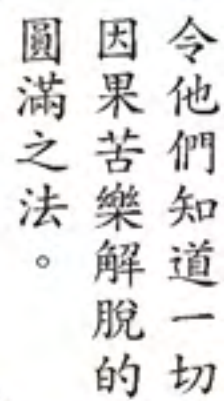 令他們知道一切
因果苦樂解脫的
圓滿之法。